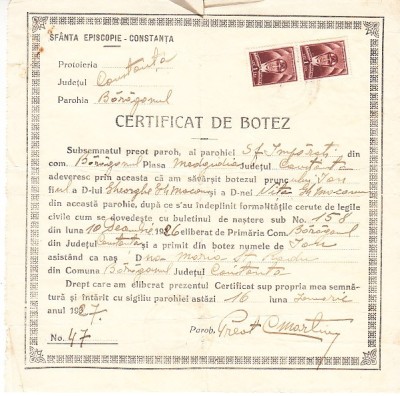 SFÂNTA EPISCOPIE - CONSTANȚA
Protoieria Constanța
Județul Constanța
Parohia Bărăganul
CERTIFICAT DE BOTEZ
Subsemnatul preot paroh, al parohiei Sf. Împărați din
com. Bărăganul Plasa Medgidia Județul Constanța
adeveresc prin aceasta că am săvârșit botezul pruncului Ion
fiul a D-lui Gheorghe Mocanu și a D-nei Mocanu
din această parohie, după ce s'au îndeplinit formalitățile cerute de legile
civile cum se dovedește cu buletinul de naștere sub No. 158
din luna 10 Decembrie 1926 eliberat de Primăria Com. Bărăganul
din Județul Constanța și a primit din botez numele de Ion
asistând ca naș D-na Maria St.
din Comuna Bărăganul Județul Constanța
Drept care am eliberat prezentul Certificat sup propria mea semnă-
tură și întărit cu sigiliu parohiei astăzi 16 luna Ianuarie
anul 1927.
No. 47
Paroh, Preot C